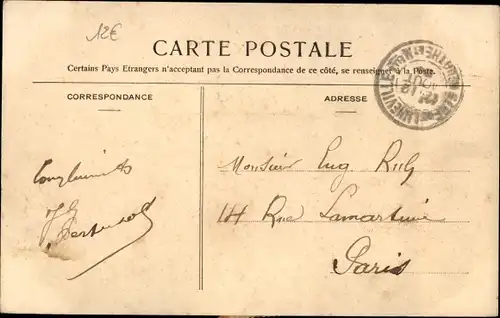 12€
CARTE POSTALE
Certains Pays Etrangers n'acceptant pas la Correspondance de ce côté, se renseigner à la Poste.
CORRESPONDANCE
ADRESSE
Compliments
Monsieur Eug.
14 Rue Lamartine
Paris